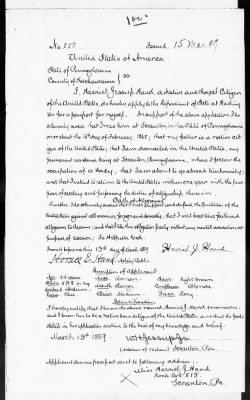 No. 250 Issued, 15 Mar 89
United States of America
State of Pennsylvania
County of Lackawanna } ss.
I, Harriet Jessup Hand, a Native and Loyal Citizen
of the United States, do hereby apply to the Department of State at Washing
ton for a passport for myself. In support of the above application I do
solemnly swear that I was born at Scranton in the State of Pennsylvania
on or about the day of February, 1865; that my father is a native citi
zen of the United States; that I am domiciled in the United States, my
permanent residence being at Scranton, Pennsylvania, where I follow the
occupation of a lady; that I am about to go abroad temporarily;
and that I intend to return to the United States with the purpo
se of residing and performing the duties of citizenship therein.
Oath of Allegiance
Further I do solemnly swear that I will support and defend the Constitution of the
United States against all enemies, foreign and domestic; that I will bear true faith and
allegiance to the same; and that I take this obligation freely, without any mental reservation or
purpose of evasion: So Help me God.
Sworn to before me this 13th day of March 1889 Harriet J. Hand
Horace E. Hand, Notary Public
Description of Applicant
Age: 24 years
Identification
I hereby certify that I know the above named Harriet J. Hand personally,
and know her to be a native born citizen of the United States, and that the facts
stated in her affidavit are true to the best of my knowledge and belief.
March 13th 1889 W H Jessup Jr
(address of witness) Scranton, Pa
Applicant desires passport sent to following address:
Miss Harriet J. Hand
Lock Box 515.
Scranton, Pa